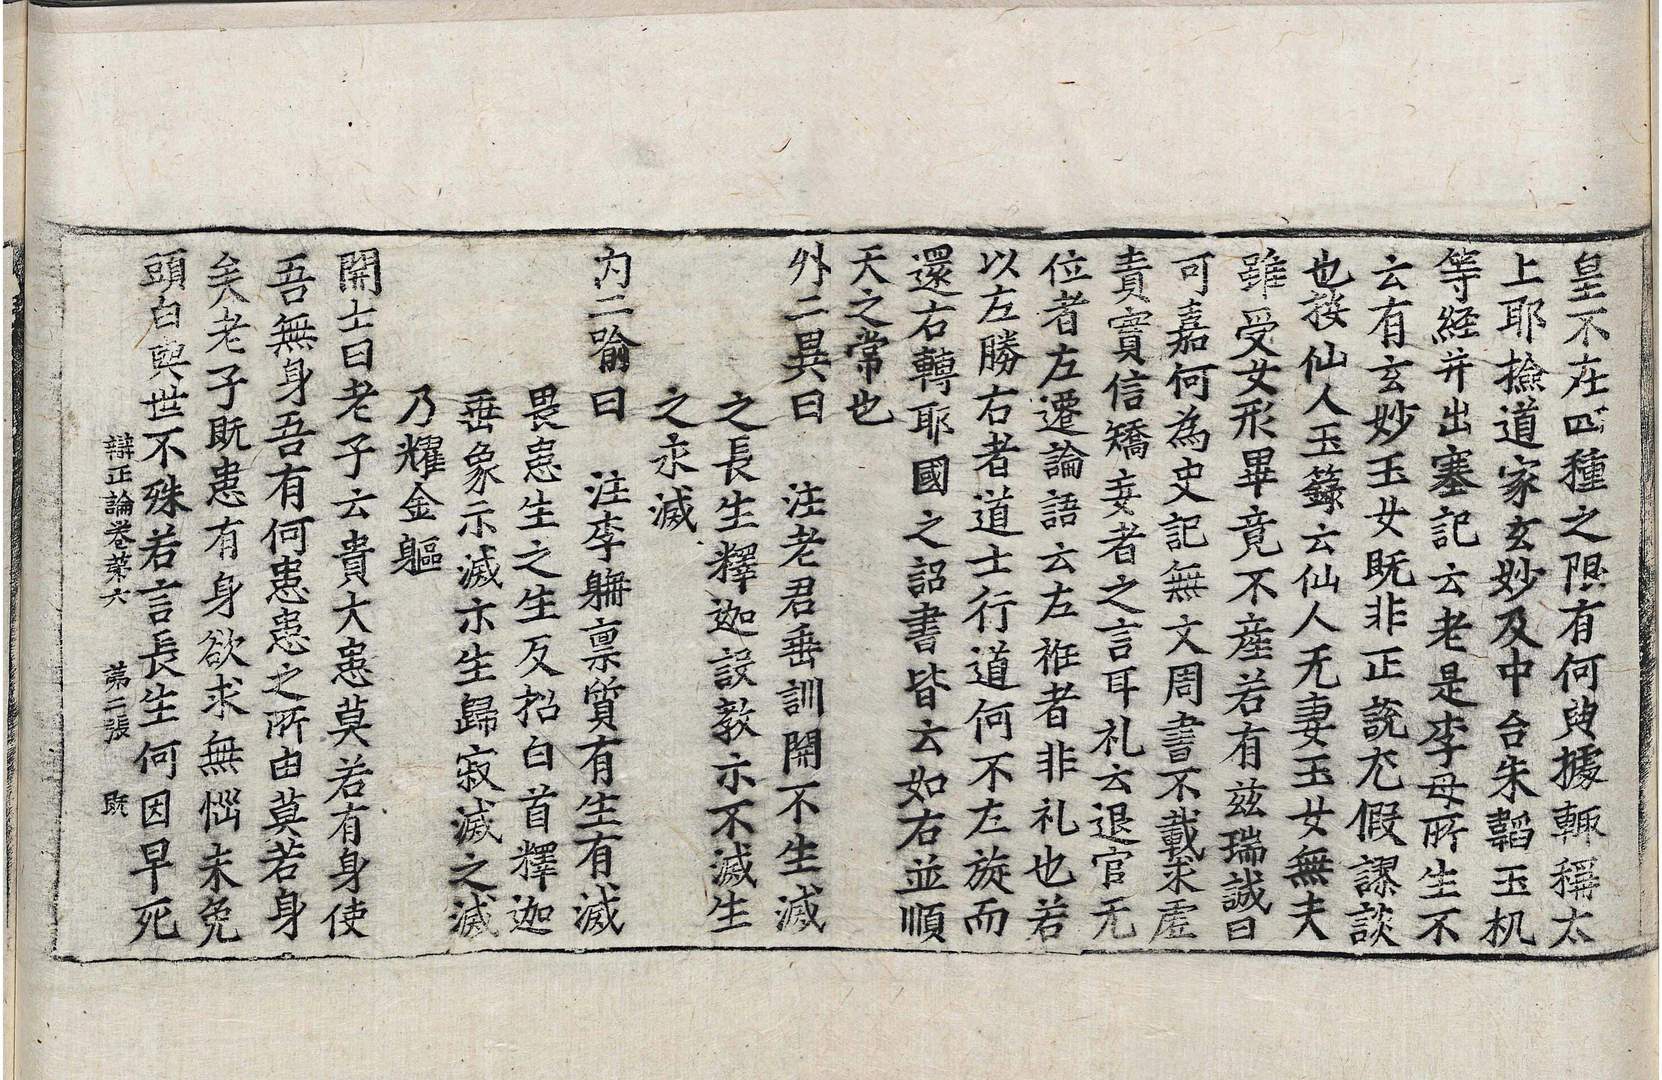 皇不在四種之限有何典據輙稱太
上耶撿道家玄妙及中台朱韜玉机
等経并出塞記云老是李母所生不
云有玄妙玉女既非正說尤假謬談
也按仙人玉籙云仙人无妻玉女無夫
雖受女形畢竟不產若有兹瑞誠曰
可嘉何為史記無文周書不載求虛
責實信矯妄者之言耳礼云退官无
位者左遷論語云左袵者非礼也若
以左勝右者道士行道何不左旋而
還右轉耶國之詔書皆云如右並順
天之常也
外二異曰 注老君垂訓開不生滅
之長生釋迦設教示不滅生
之永滅
内二喻曰 注李𨈭禀質有生有滅
畏患生之生反招白首釋迦
垂象示滅示生歸寂滅之滅
乃耀金軀
開士曰老子云貴大患莫若有身使
吾無身吾有何患患之所由莫若身
矣老子既患有身欲求無惱未免
頭白與世不殊若言長生何因早死
辯正論卷第六 第二張 旣